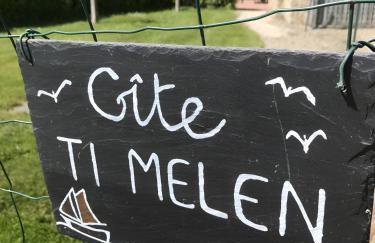 Gîte
TI MELEN